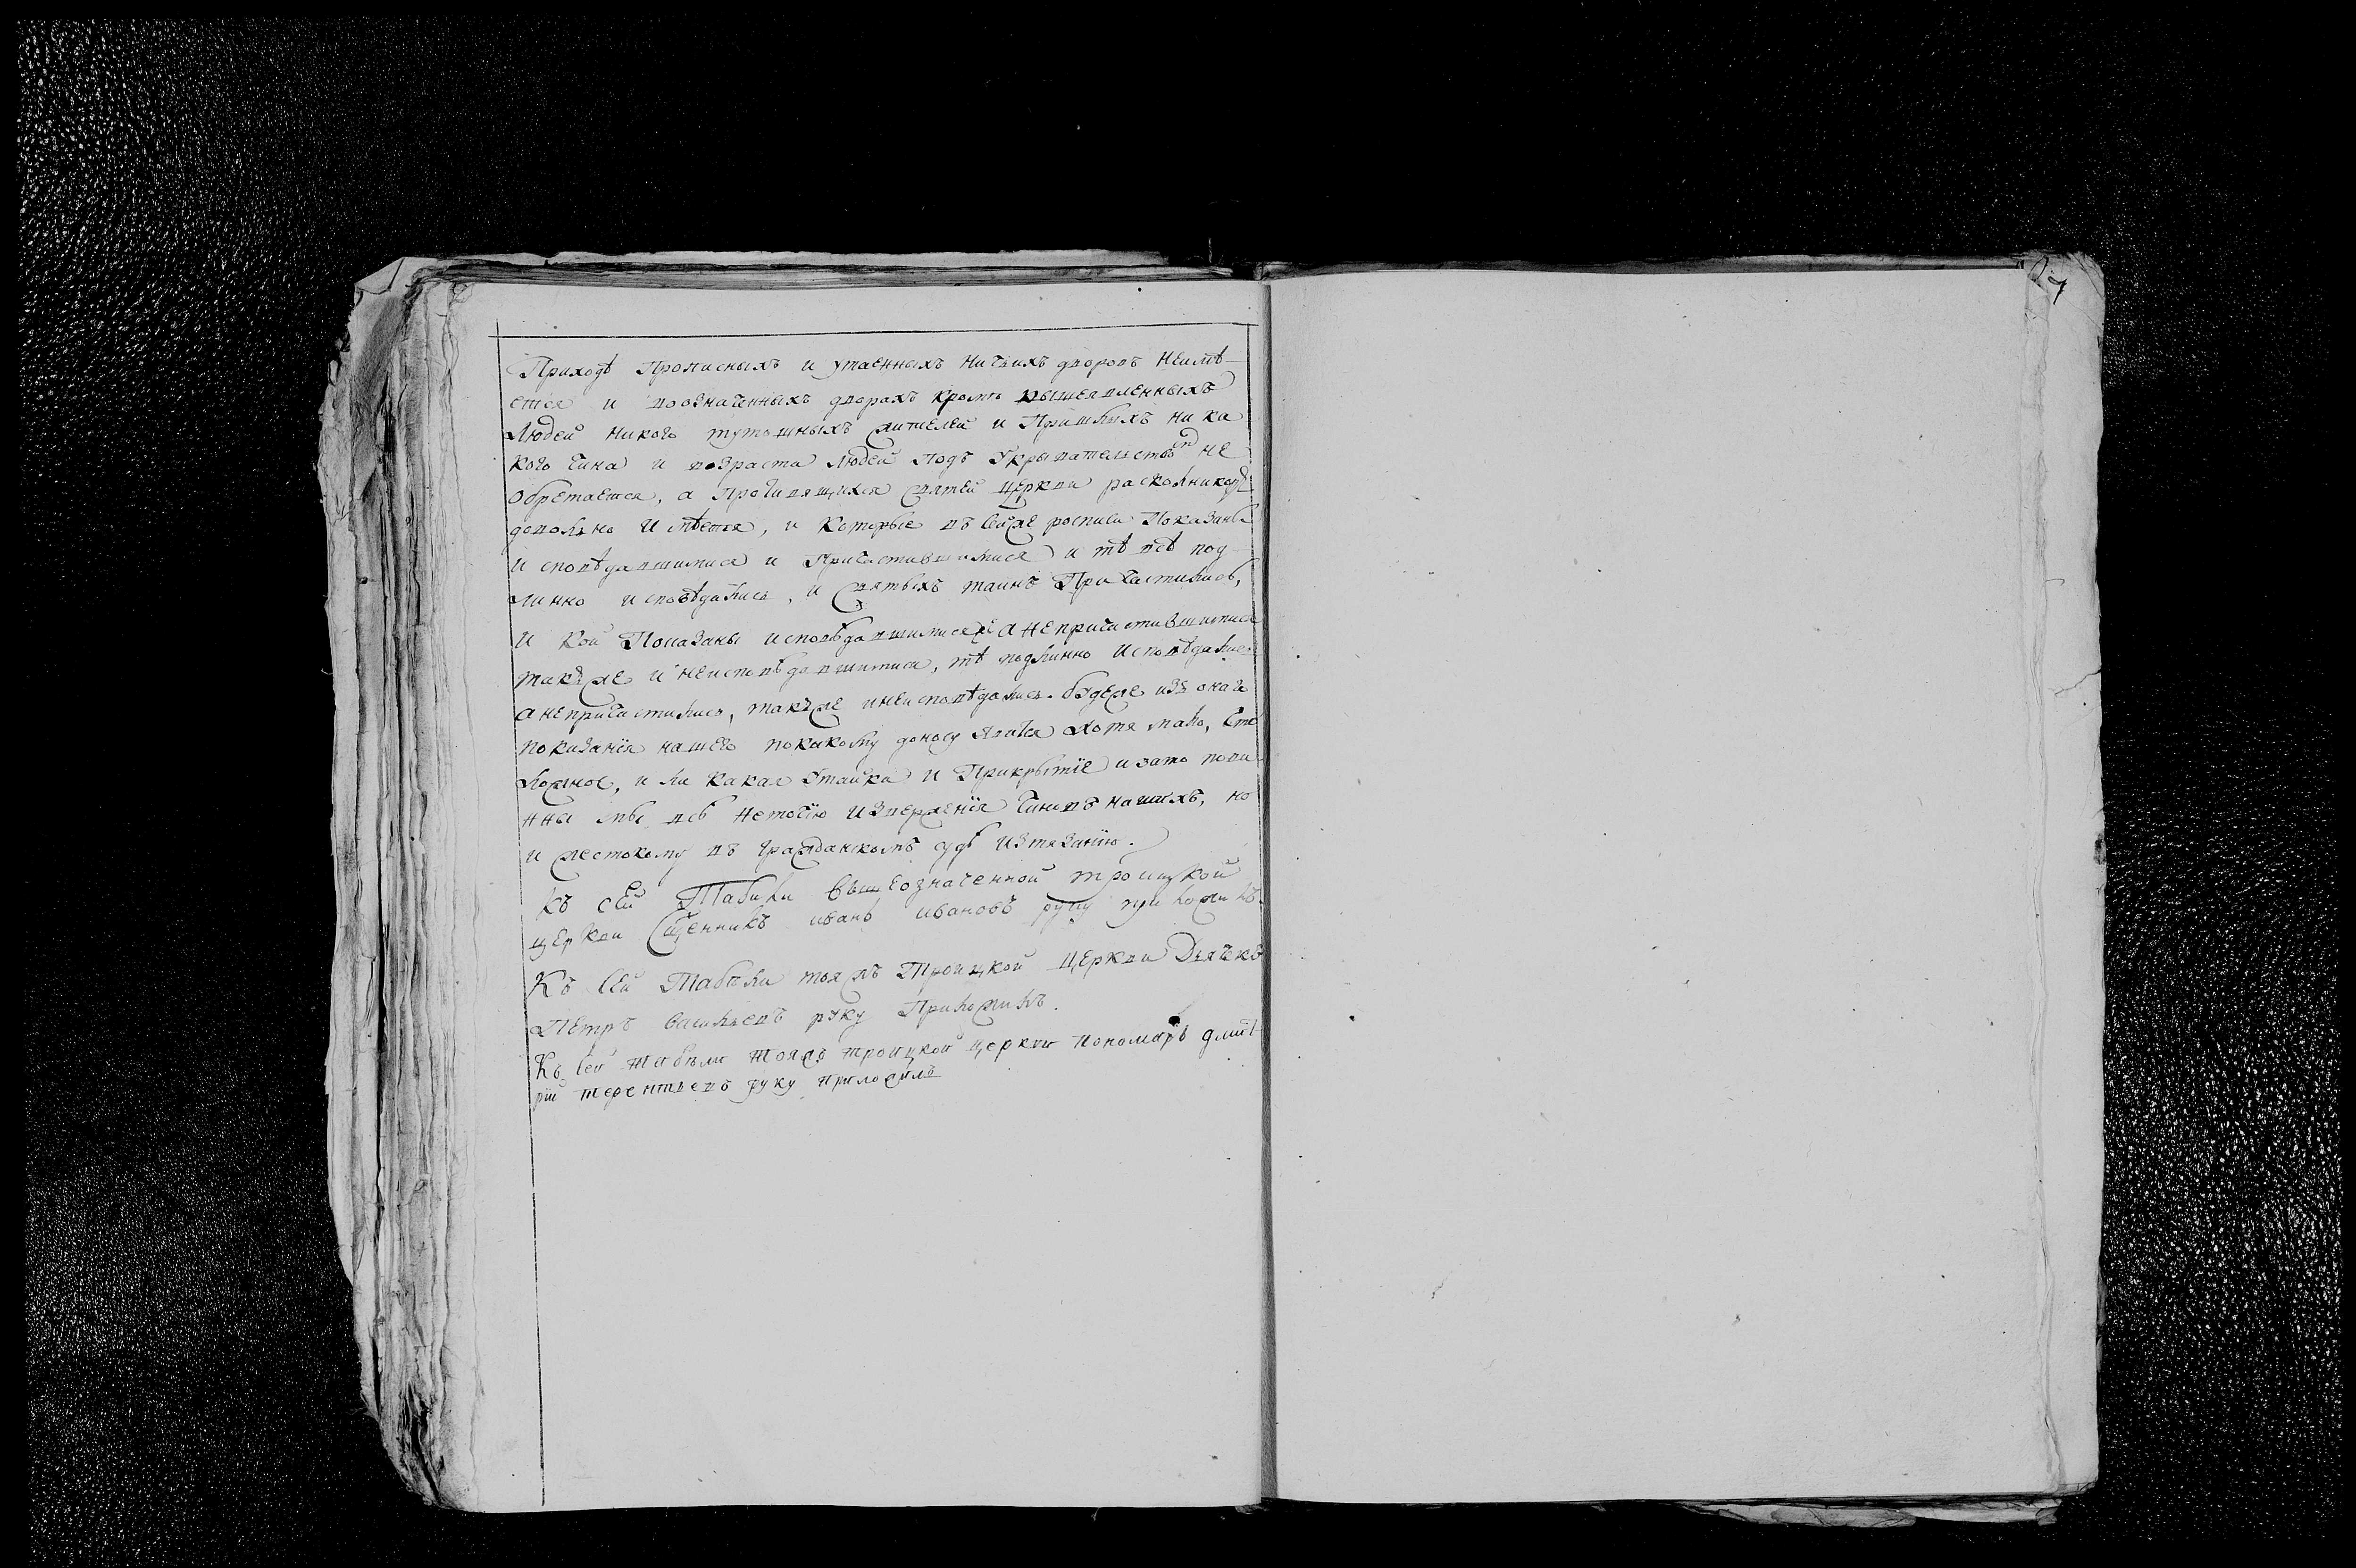 Приходѣ прописныхъ и утаенныхъ ничьихъ дворовъ неимѣ-
ется и воозначенныхъ дворахъ кромѣ вышеявленныхъ
людей никого тутошныхъ жителей и пришлыхъ ника
кого чина и возраста людей подъ укрывательствомъ не
обретается, а противящихся святей церкви расколниковъ
доволно имѣется, и которые въ сейже росписи показаны
исповѣдавшимися и причастившимися и тѣ всѣ под-
линно исповѣдались, и святыхъ таинъ причастились,
и кои показаны исповѣдавшимисяжъ а непричастившимися
такъже и неисповѣдавшимися, тѣ подлинно исповѣдались
а непричастились, такъже инеисповѣдались. будеже изъ онаго
показанїя нашего покакому доносу явится хотя мало, что
ложное, или какая утайка и прикрытїе изато пови
нны мы всѣ неточїю изверженїя чиновъ нашихъ, но
и жестокому въ гражданскомъ судѣ изтязанїю.
къ сей табели вышеозначенной троицкой
церкви сщенникъ иванъ ивановъ руку приложилъ.
Къ сей табели тояжъ троицкой церкви дьячкъ
петръ васильевъ руку приложилъ.
Къ сей табели тояжъ троицкой церкви пономарь дмит-
рїй терентьевъ руку приложилъ